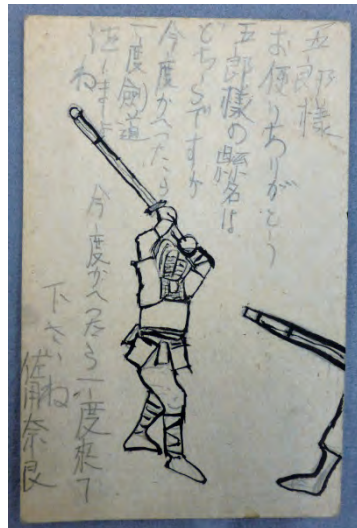 五郎様
お便りありがとう
五郎様の縣名は
どちらですか
今度かへつたら
一度劍道
ましよ
ね
今度かへつたら一度來て
下さいね
奈良